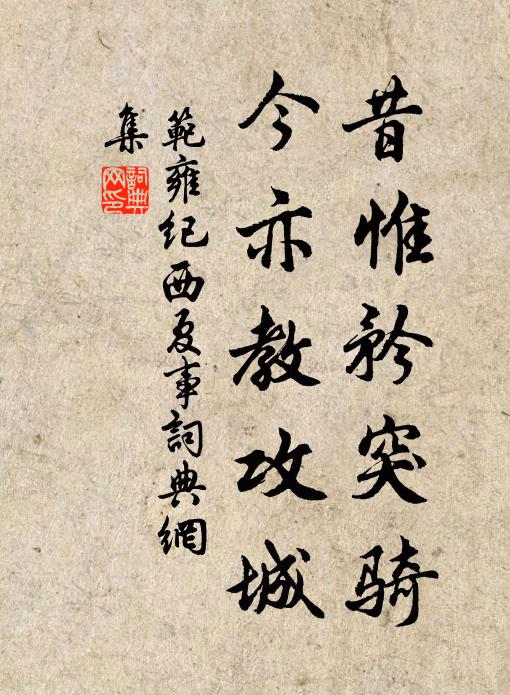 昔惟矜突骑
今亦教攻城
範雍纪西夏事詞典網
集
詞典
网印